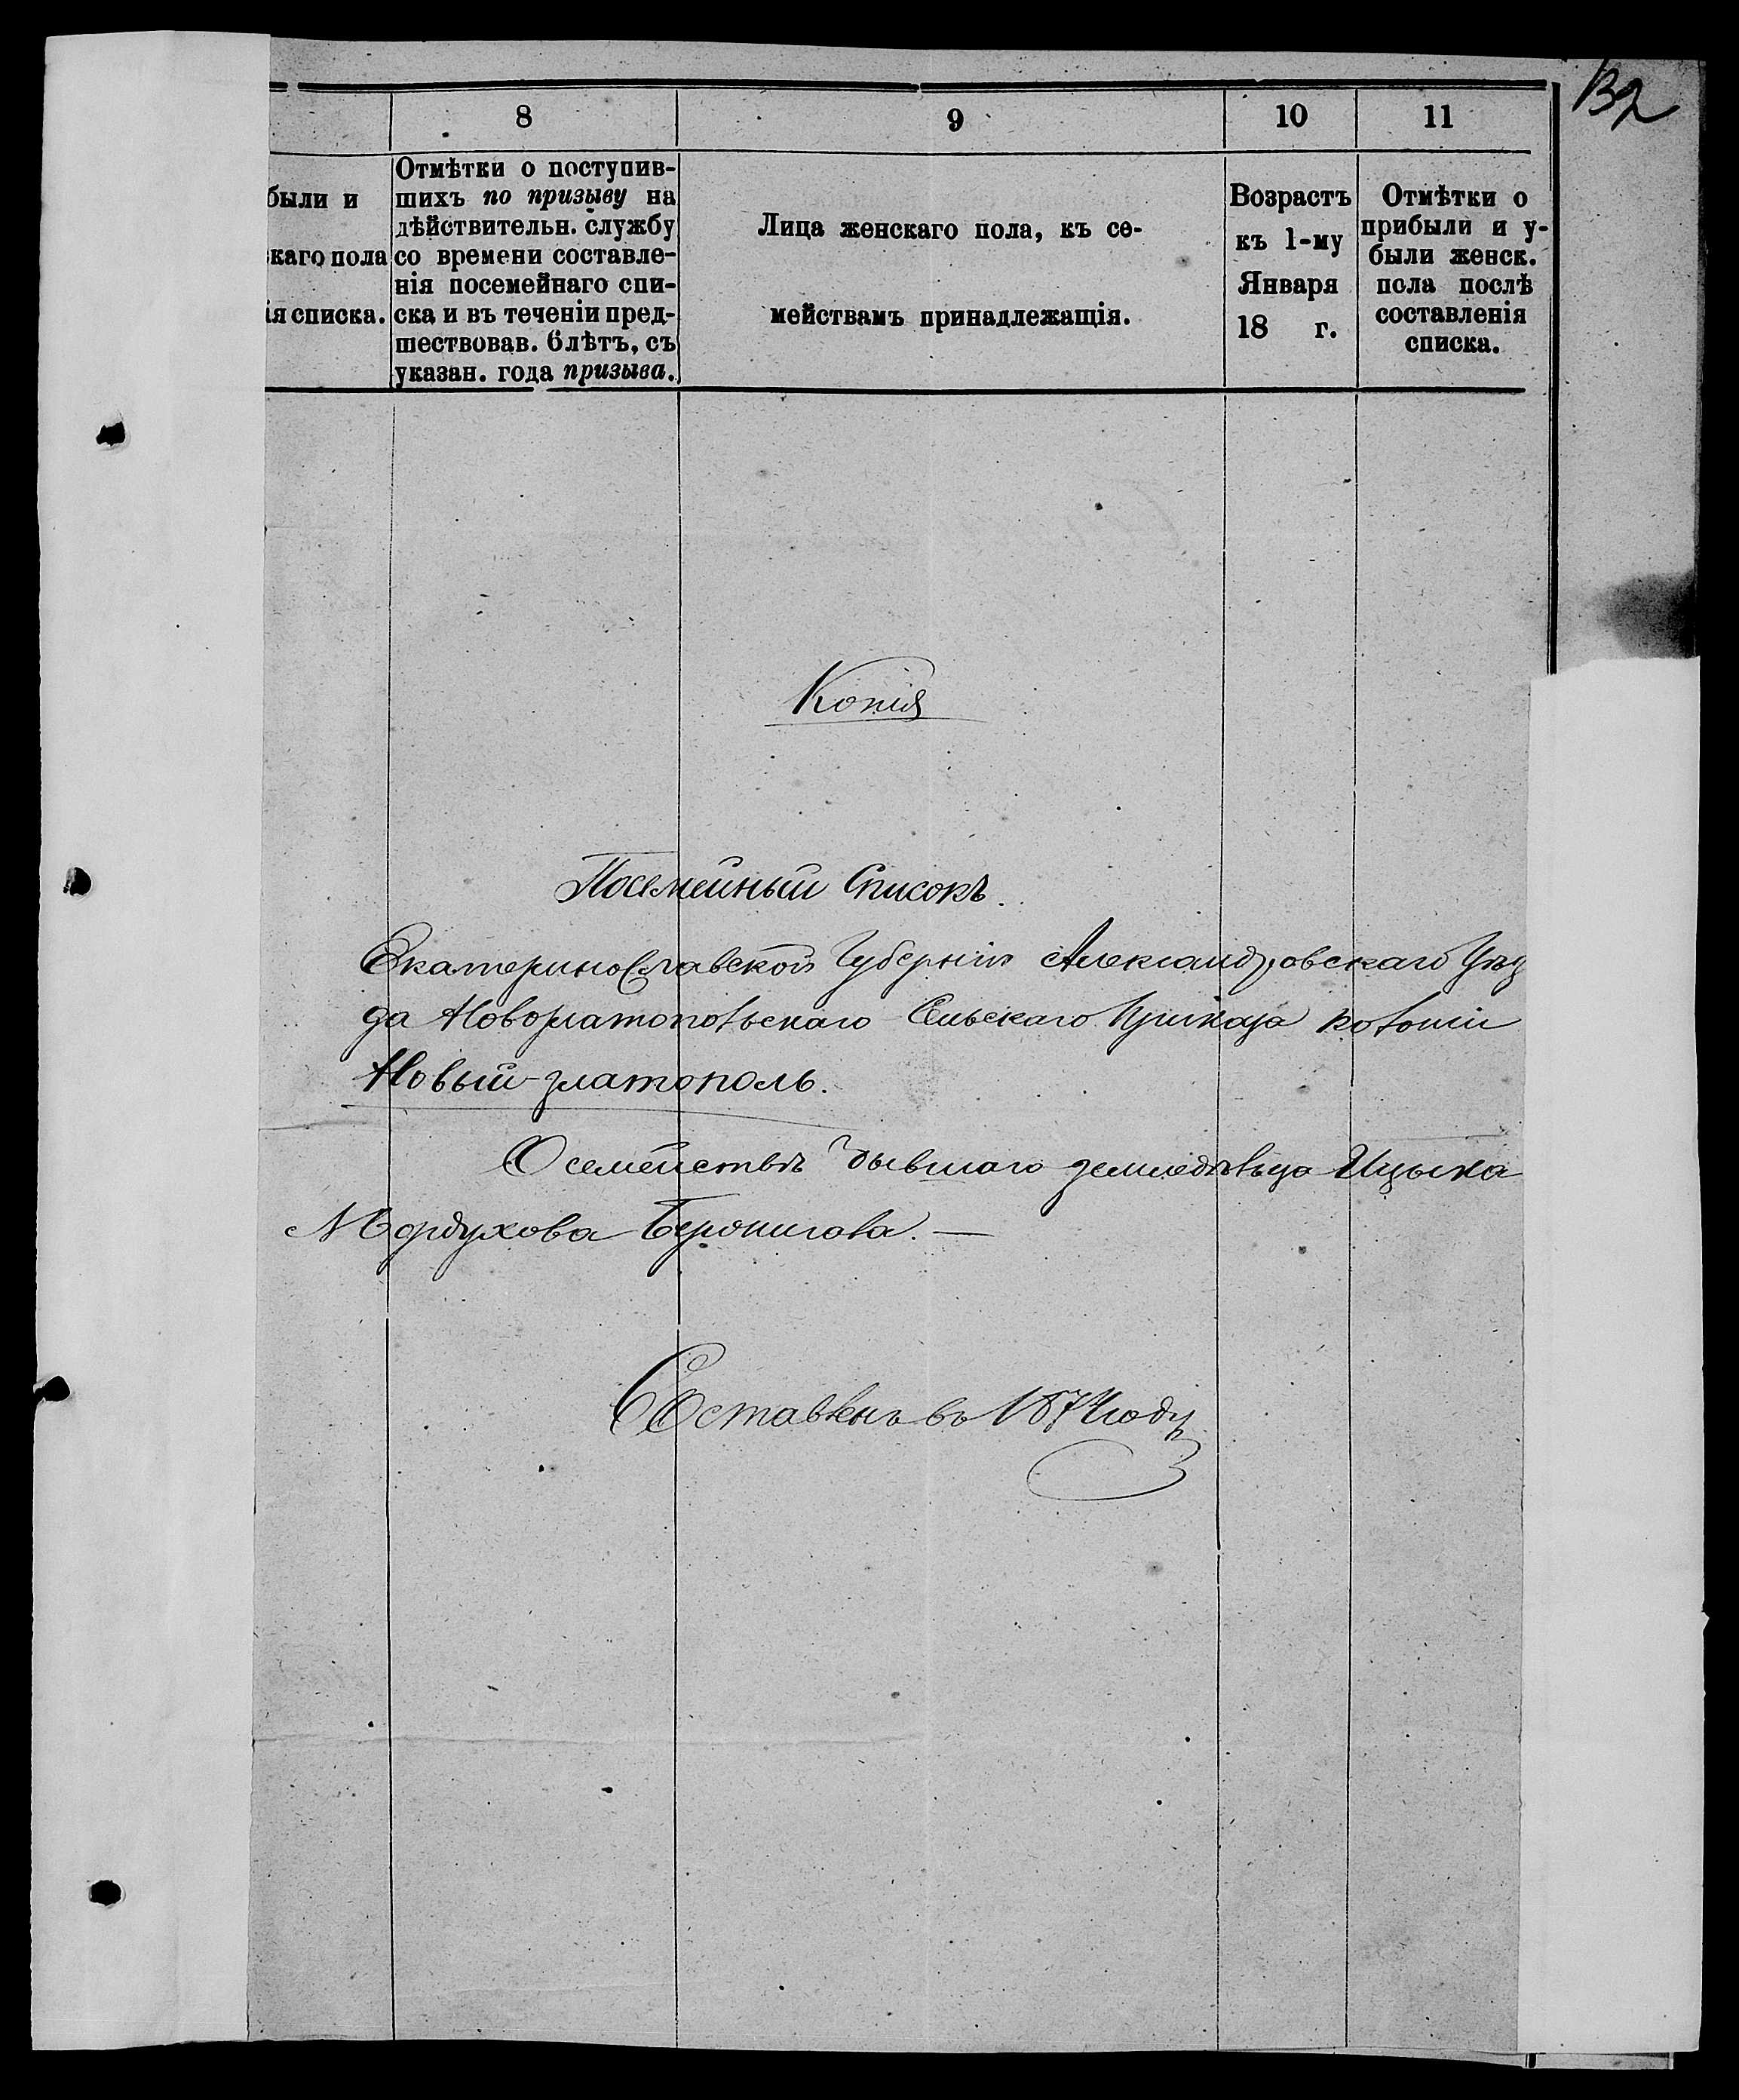 132
8 9 10 11
были и
каго пола
ія списка.
Отмѣтки о поступив-
шихъ по призыву на
дѣйствительн. службу
со времени составле-
нія посемейнаго спи-
ска и въ теченіи пред-
шествовав. 6 лѣтъ, съ
указан. года призыва.
Лица женскаго пола, къ се-
мействамъ принадлежащія.
Возрастъ
къ 1-му
Января
18 г.
Отмѣтки о
прибыли и у-
были женск.
пола послѣ
составленія
списка.
Копія
Посемейный Списокъ.
Екатеринославской Губерніи Александровскаго Уѣз
да Новозлатопольскаго Сельскаго Приказа колоніи
Новый-златополь.
О семействѣ бывшаго земледѣльца Ицыка
Мордухова
Составленъ въ 1874 году